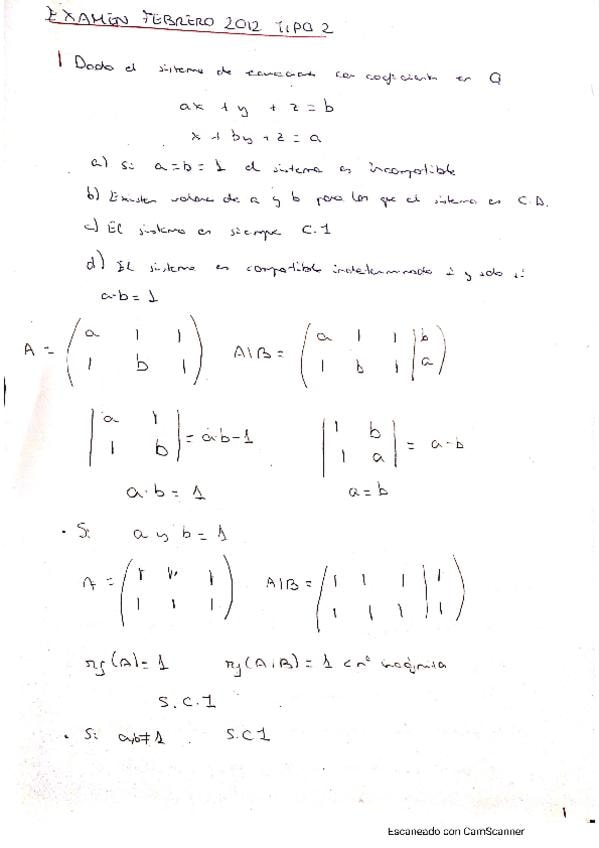 EXAMEN FEBRERO 2012 TIPO 2
1 Dado el sistema de ecuaciones con coeficientes en Q
ax + y + z = b
x + by + z = a
a) Si a = b = 1 el sistema es incompatible
b) Existen valores de a y b para los que el sistema es C.D.
c) El sistema es siempre C.I
d) El sistema es compatible indeterminado si y solo si
a·b = 1
A = ( a 1 1 A|B = ( a 1 1 | b
1 b 1 ) 1 b 1 | a )
| a 1 | | 1 b |
| 1 b | = a·b-1 | 1 a | = a-b
a·b = 1 a = b
· Si a y b = 1
A = ( 1 1 1 A|B = ( 1 1 1 | 1
1 1 1 ) 1 1 1 | 1 )
rg(A) = 1 rg(A|B) = 1 < nº incógnitas
S.C.I
· Si a,b ≠ 1 S.C.I
1
Escaneado con CamScanner